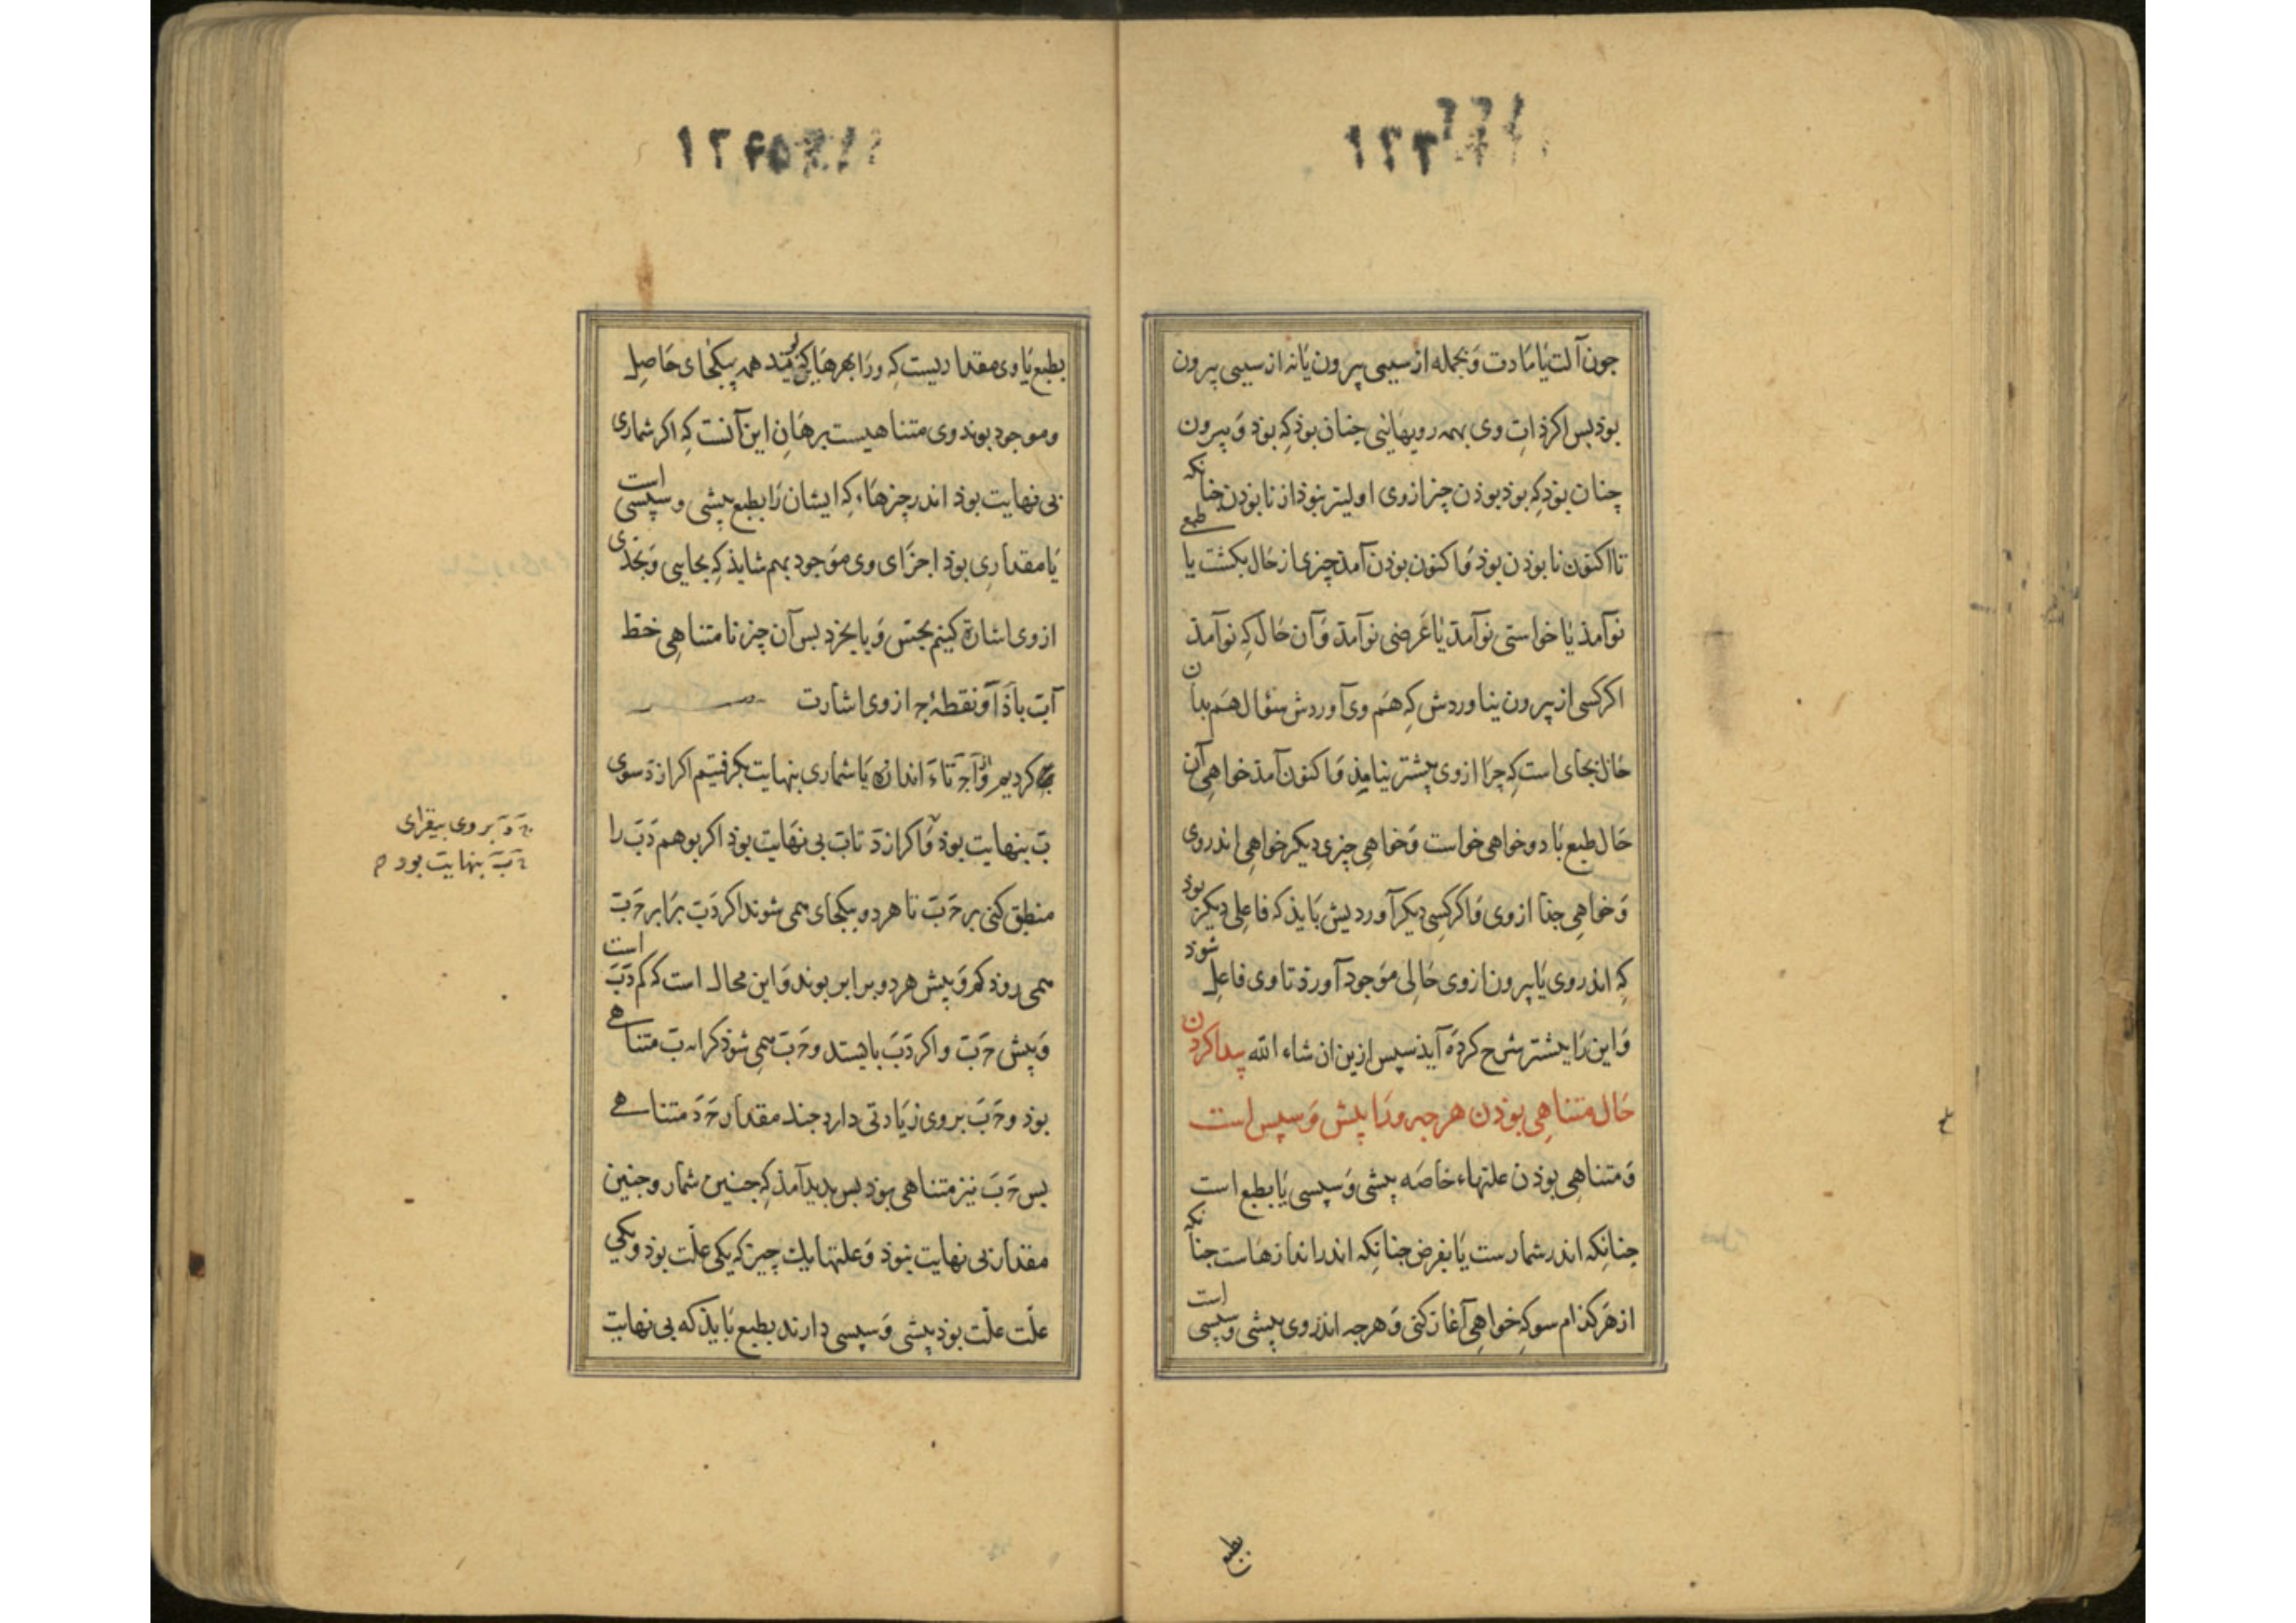 جون آلت یا مادت و بجمله از سببی بیرون یا نه از سببی بیرون
بوذ بس اکر ذات وی بهمه رویهایی چنان بوذ کِه بوذ و بیرون
چنان بوذ کِه بوذ بوذن چیز از وی اولیتر نبوذ از نا بوذن چنانکه
تا اکنون نا بوذن بوذ و اکنون بوذن آمذ چیزی از حال بکشت یا طبعی
نو آمذ یا خواستی نو آمذ یا غرضی نو آمذ و آن حال کِه نو آمذ
اکر کسی از بیرون نیاوردش کِه هم وی آوردش سئوال هم بدان
حال بجای است کِه چرا از وی پیشتر نیامذ و اکنون آمذ خواهی آن
حال طبع باد و خواهی خواست و خواهی چیزی دیکر خواهی اندر وی
و خواهی جذا از وی و اکر کسی دیکر آوردیش بایذ که فاعلی دیکر بوذ
کِه اندر وی یا بیرون از وی حالی موجود آورد تا وی فاعل شوذ
و این را پیشتر شرح کرده آیذ سپس ازین ان شاء الله پیدا کردن
حال متناهی بوذن هرجه ورا پیش و سپس است
و متناهی بوذن علتهاء خاصه پیشی و سپسی یا بطبع است
چنانکه اندر شمارست یا بفرض چنانکه اندر اندازهاست چنانکه
از هر کذام سو کِه خواهی آغاز کنی و هرجه اندر وی پیشی و سپسی است
بطبع
بطبع یا وی مقداریست کِه ورا بهرهایی بوند همه بیکجای حاصل
و موجود بوند وی متناهیست برهان این آنست کِه اکر شماری
بی نهایت بوذ اندر چیزهاء کِه ایشان را بطبع پیشی و سپسی است
یا مقداری بوذ اجزای وی موجود بهم شایذ کِه بجایی و بحذی
از وی اشارة کنیم بحس و یا بخرد بس آن چیز نا متناهی خط
آب باذ آ و نقطهٔ ج از وی اشارت
کردیم و از آ ج تا د اندازه یا شماری بنهایت بکرفتیم اکر از د سوی
ب بنهایت بوذ و اکر از د تا ب بی نهایت بوذ اکر بوهم د ب را
منطبق کنی بر ج ب تا هر دو بیکجای همی شوند اکر د ب برابر ج ب
همی روذ کم و بیش هر دو برابر بوند و این محال است که کم د ب است
و بیش ج ب و اکر د ب بایستد و ج ب همی شوذ کرانه ب متناهی
بوذ و ج ب بر وی زیادتی دارد چند مقدار ج د متناهی
بس ج ب نیز متناهی بوذ بس بدید آمذ کِه چنین شمار و چنین
مقدار بی نهایت نبوذ و علتها یک چیز کِه یکی علّت بوذ و یکی
علّت علّت بوذ پیشی و سپسی دارند بطبع بایذ که بی نهایت
ج د بر وی بیفزای
ج ب بنهایت بود